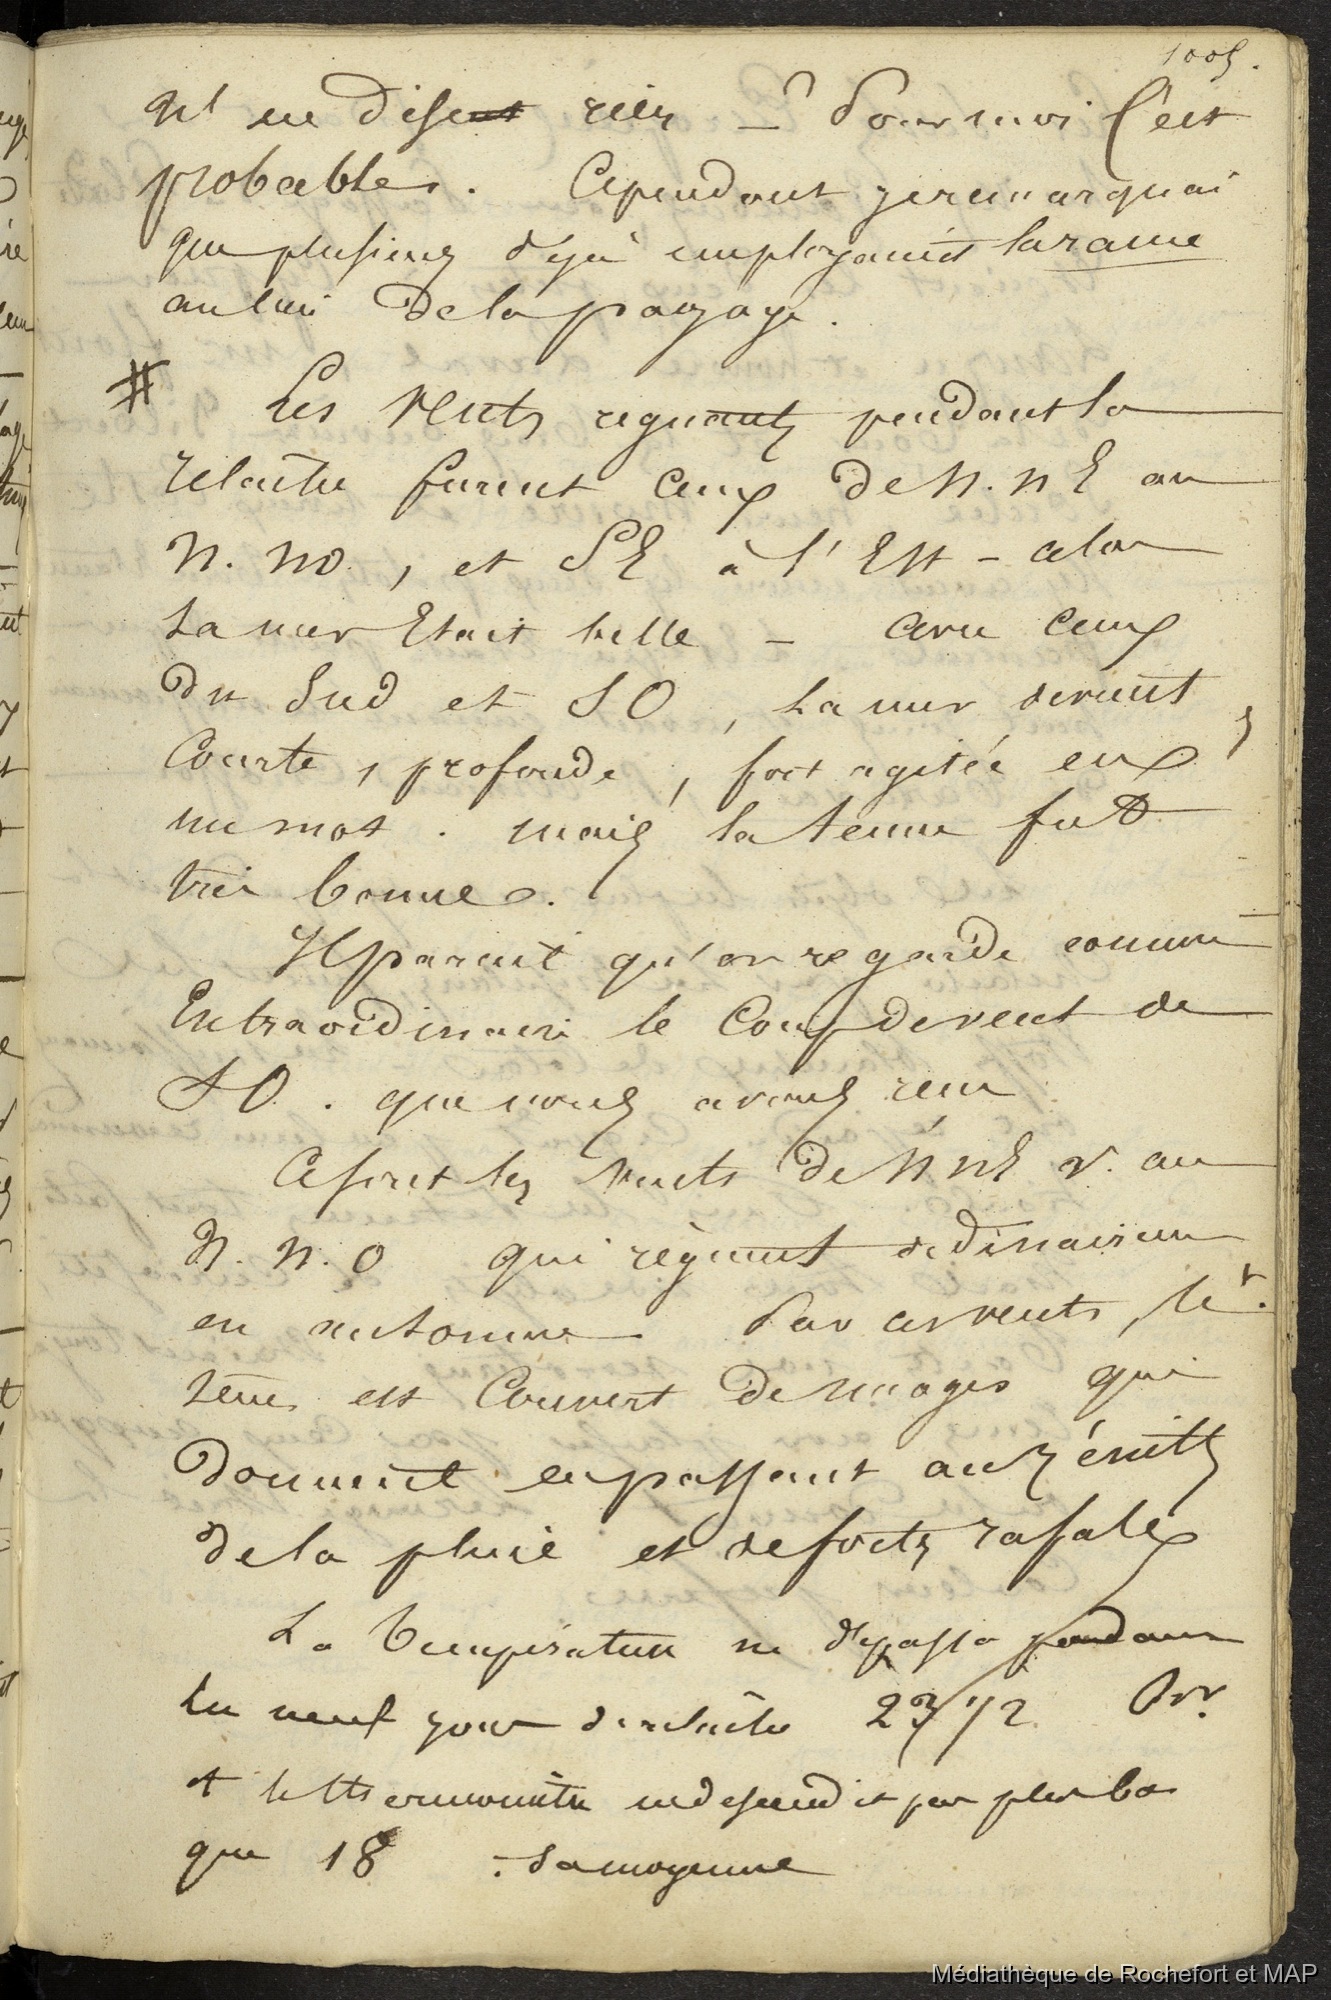 1005.
qui ne disent rien — Pour moi c'est
probables. Cependant je remarquai
que plusieurs déjà employaient la rame
au lieu de la pagaye.
# Les vents regnants pendant la
relache furent ceux de N. NE au
N. NO, et SE à l'Est — alors
La mer Etait belle — avec ceux
du Sud et SO, La mer devient
Courte, profonde, fort agitée en
un mot. mais la tenue fut
très bonne.
Il parait qu'on regarde comme
Extraordinaire le Coup de vent de
SO. que nous avons reçu
Ce sont les vents de N NE au
N. N. O qui règnent ordinairement
en automne. Par ces vents, le
tems est Couvert de nuages qui
donnent en passant au zénith
de la pluie et de fortes rafales
La température ne dépassa pendant
les neuf jours de relâche 23 1/2
et le thermomètre ne descendit pas plus bas
que 18. La moyenne
Médiathèque de Rochefort et MAP